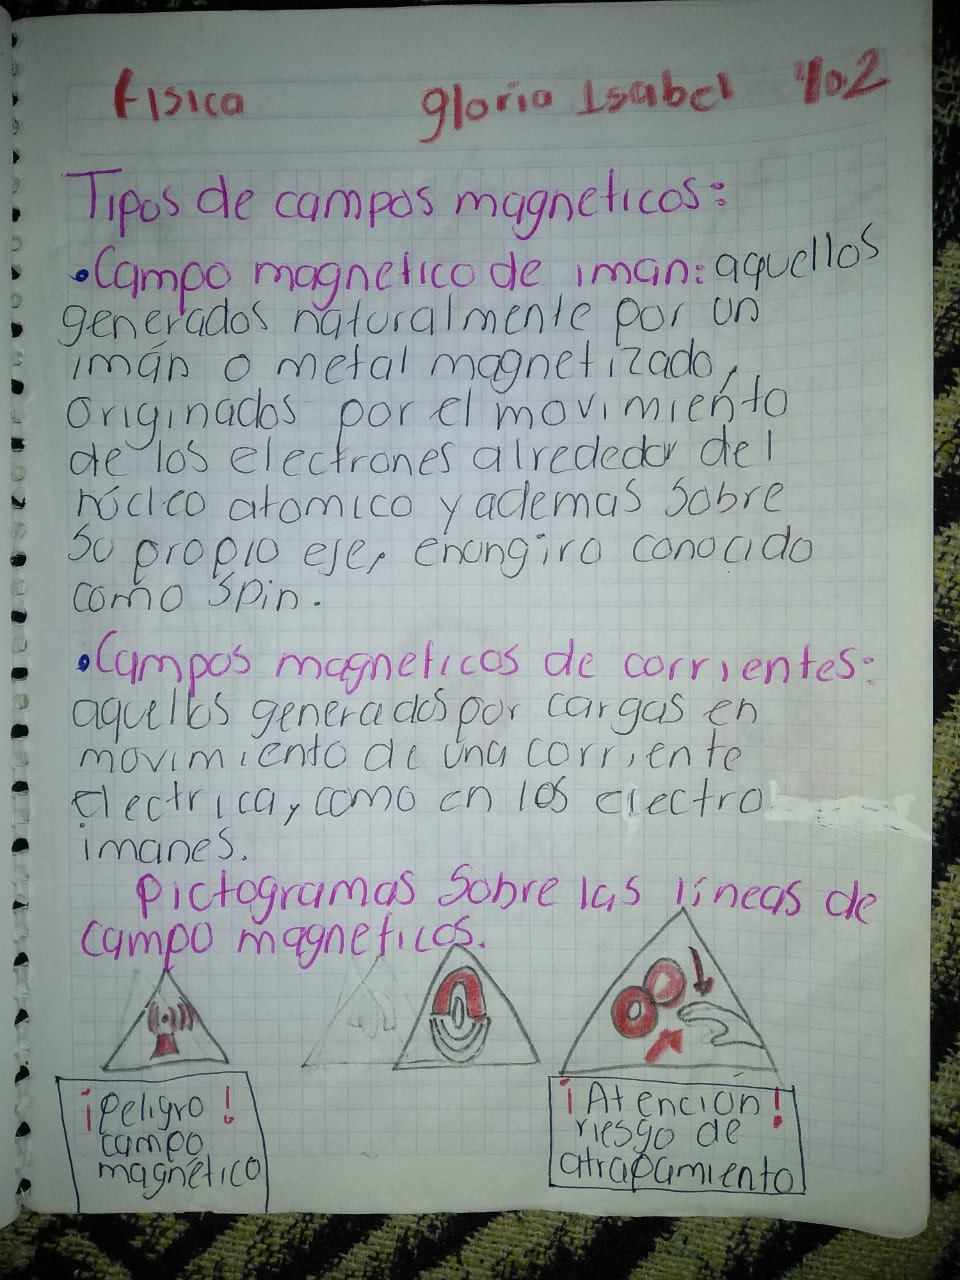 Fisica Gloria Isabel 10.2
Tipos de campos magneticos:
•Campo magnetico de iman: aquellos
generados naturalmente por un
imán o metal magnetizado,
originados por el movimiento
de los electrones alrededor del
núcleo atomico y ademas sobre
su propio eje, enungiro conocido
como spin.
•Campos magneticos de corrientes:
aquellos generados por cargas en
movimiento de una corriente
electrica, como en los electro
imanes.
Pictogramas sobre las líneas de
campo magneticos.
¡Peligro!
campo
magnético
¡Atención!
riesgo de
atrapamiento